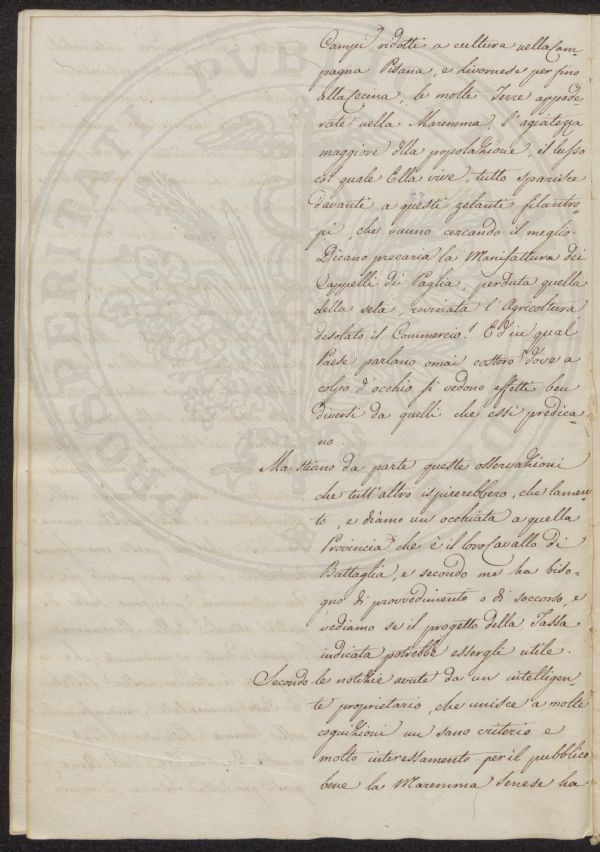 Campi ridotti a cultura nella Cam-
pagna Pisana, e Livornese per fino
alla Cecina, le molte Terre appode-
rate nella Maremma, l'agiatezza
maggiore della popolazione, il lusso
col quale Ella vive, tutto sparisce
davanti a questi zelanti filantro-
pi, che vanno cercando il meglio.
Dicano precaria la Manifattura dei
Cappelli di Paglia, perduta quella
della seta, rovinata l'Agricoltura
desolato il Commercio! Ed in qual
Paese parlano omai costoro? dove a
colpo d'occhio si vedono effetti ben
diversi da quelli che essi predica-
no.
Ma stiano da parte queste osservazioni
che tutt'altro ispirerebbero, che lamen-
to, e diamo un occhiata a quella
Provincia che è il loro Cavallo di
Battaglia, e secondo me ha biso-
gno di provvedimento o di soccorso, e
vediamo se il progetto della Tassa
indicata potrebbe essergli utile.
Secondo le notizie avute da un intelligen-
te proprietario, che unisce a molte
cognizioni un sano criterio e
molto interessamento per il pubblico
bene la Maremma Senese ha
PROSPERITATI PUBLICAE